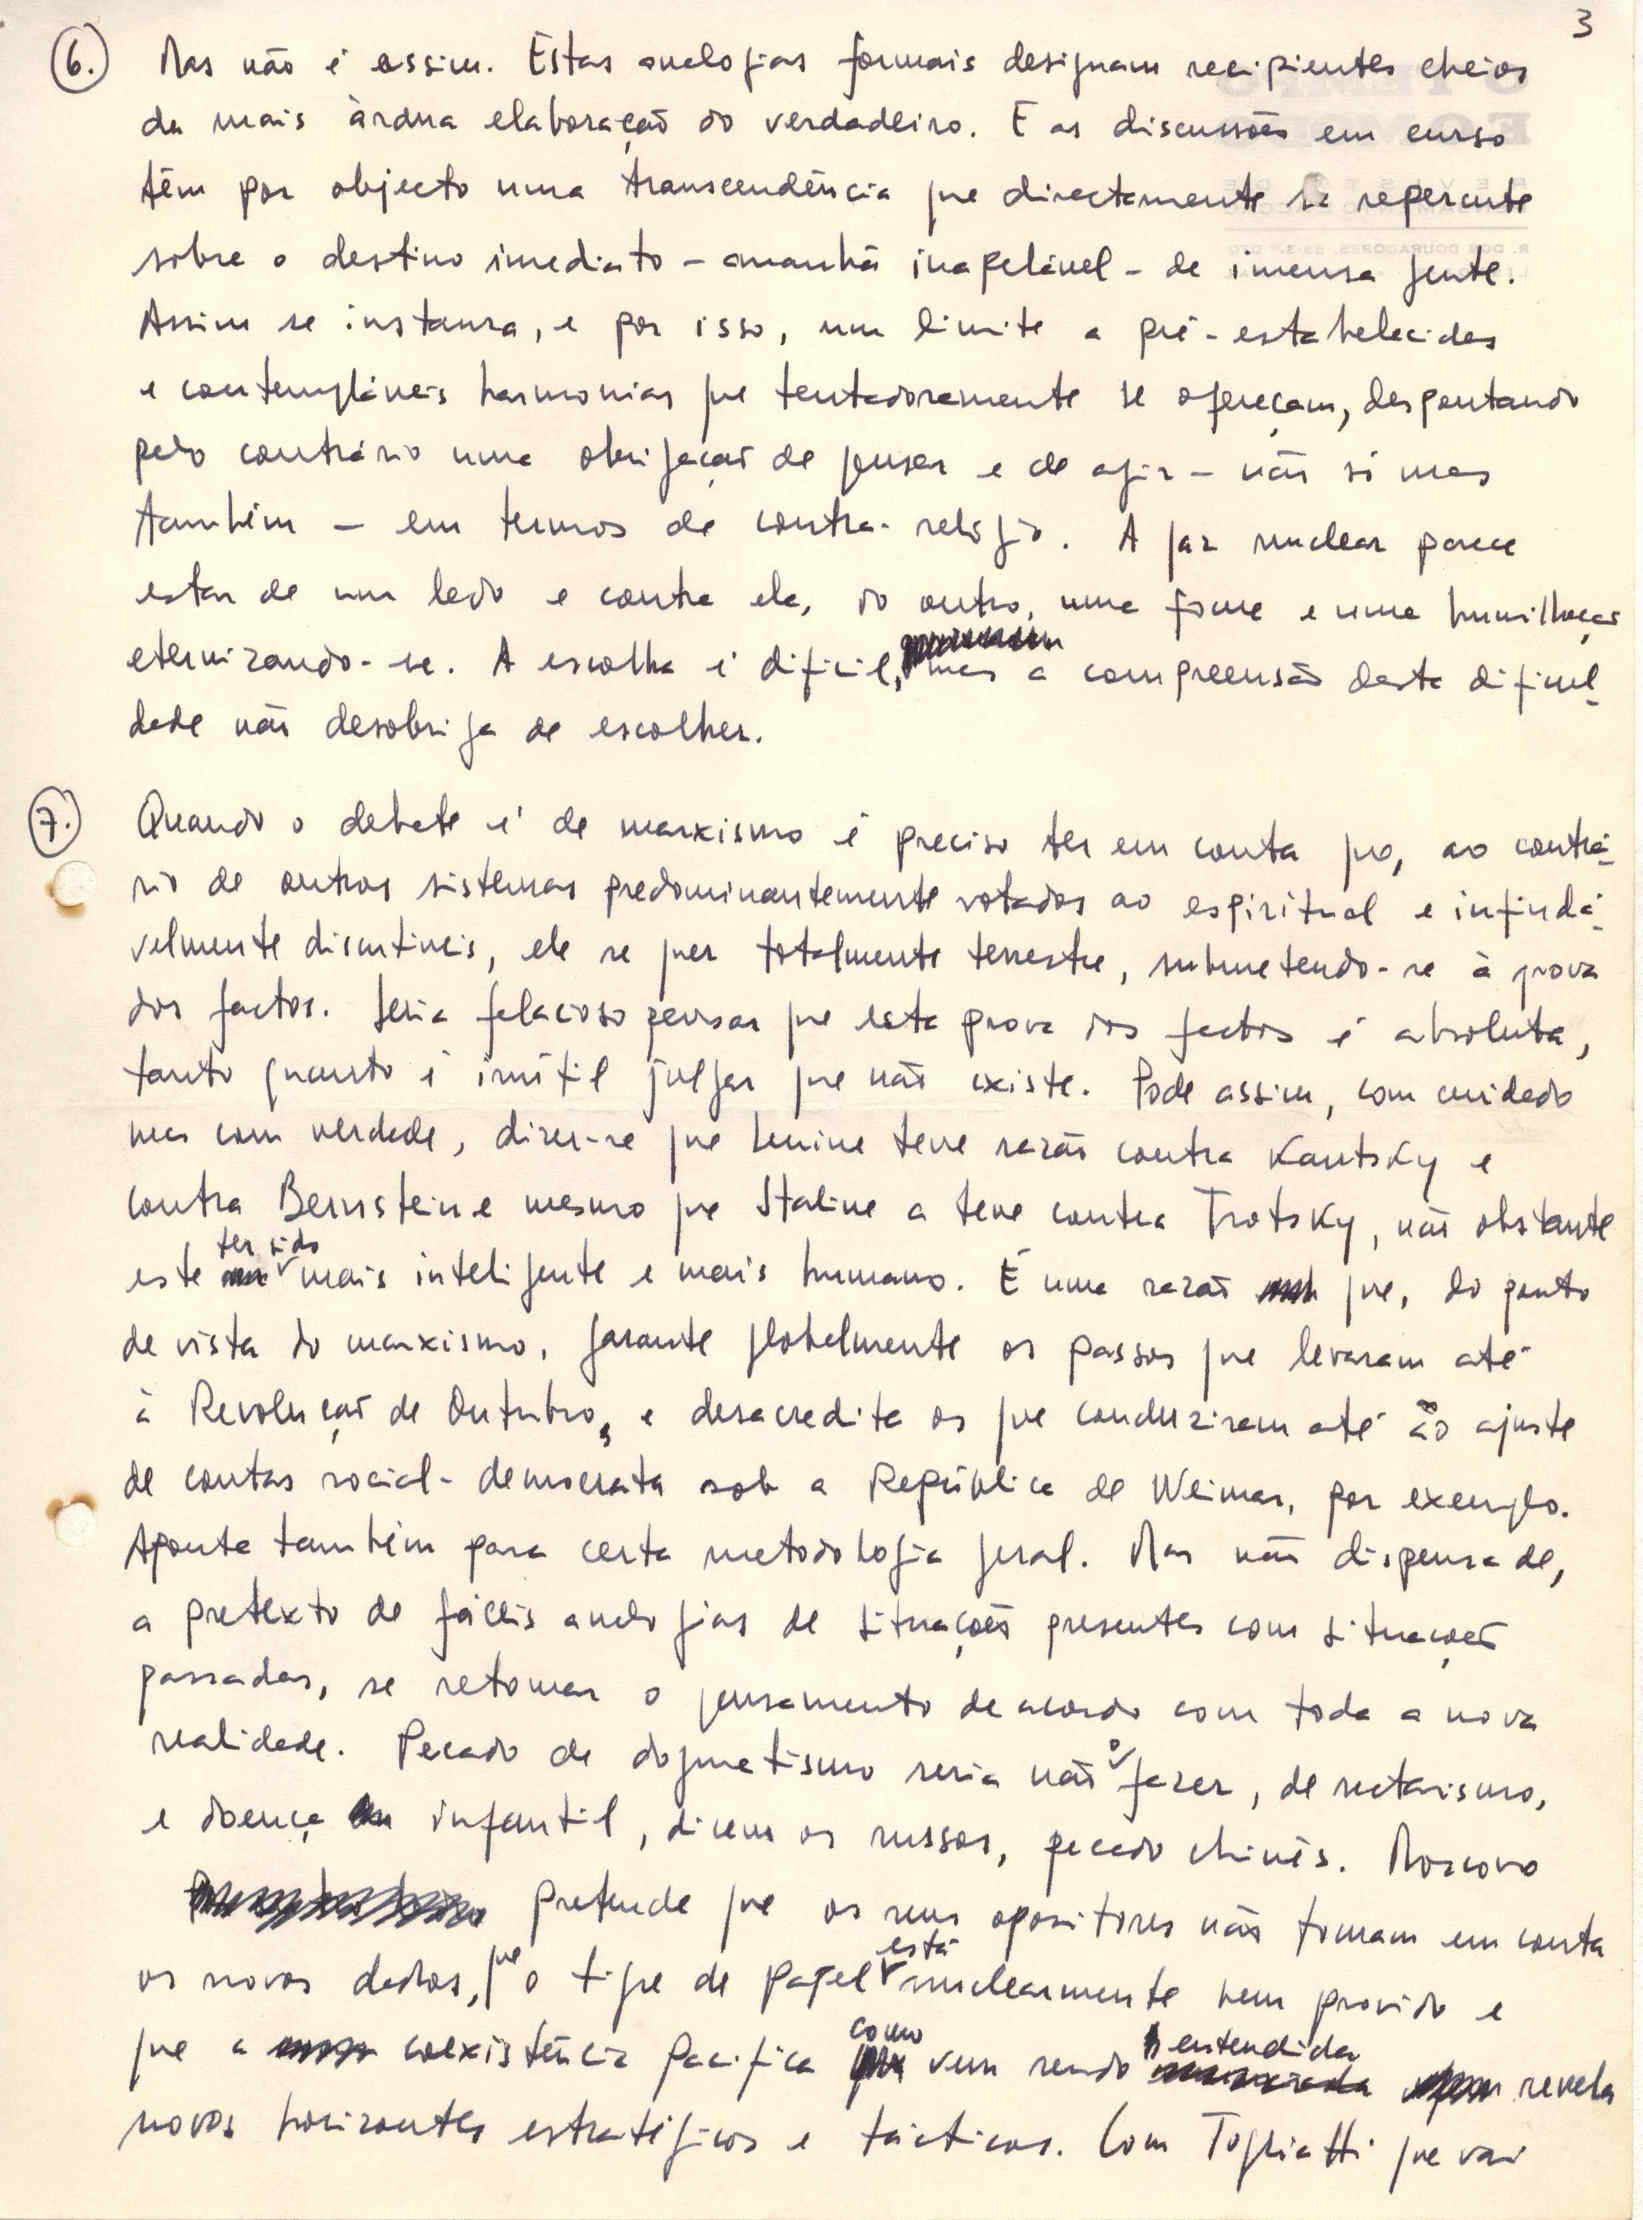 3
6. Mas não é assim. Estas analogias formais designam recipientes cheios
da mais àrdua elaboração do verdadeiro. E as discussões em curso
têm por objecto uma transcendência que directamente se repercute
sobre o destino imediato - amanhã inapelável - de imensa gente.
Assim se instaura, e por isso, um limite a pré-estabelecidas
e contempláveis harmonias que tentadoramente se ofereçam, despontando
pelo contrário uma obrigação de pensar e de agir - não só mas
também - em termos de contra-relógio. A paz nuclear parece
estar de um lado e contra ela, do outro, uma fome e uma humilhação
eternizando-se. A escolha é difícil, mas a compreensão desta dificul-
dade não desobriga de escolher.
7. Quando o debate é de marxismo é preciso ter em conta que, ao contrá-
rio de outros sistemas predominantemente votados ao espiritual e infindá-
velmente discutíveis, ele se quer totalmente terrestre, submetendo-se à prova
dos factos. Seria falacioso pensar que esta prova dos factos é absoluta,
tanto quanto é inútil julgar que não existe. Pode assim, com cuidado
mas com verdade, dizer-se que Lenine teve razão contra Kautsky e
contra Bernstein e mesmo que Staline a teve contra Trotsky, não obstante
este ter sido mais inteligente e mais humano. É uma razão que, do ponto
de vista do marxismo, garante globalmente os passos que levaram até
à Revolução de Outubro, e desacredita os que conduziram até ao ajuste
de contas social-democrata sob a República de Weimar, por exemplo.
Aponta também para certa metodologia geral. Mas não dispensa de,
a pretexto de fáceis analogias de situações presentes com situações
passadas, se retomar o pensamento de acordo com toda a nova
realidade. Pecado de dogmatismo seria não o fazer, de sectarismo,
e doença infantil, dizem os russos, pecado chinês. Moscovo
pretende que os seus opositores não tomam em conta
os novos dados, que o tigre de papel está nuclearmente bem provido e
que a coexistência pacífica como vem sendo entendida revela
novos horizontes estratégicos e tácticos. Com Togliatti que vai